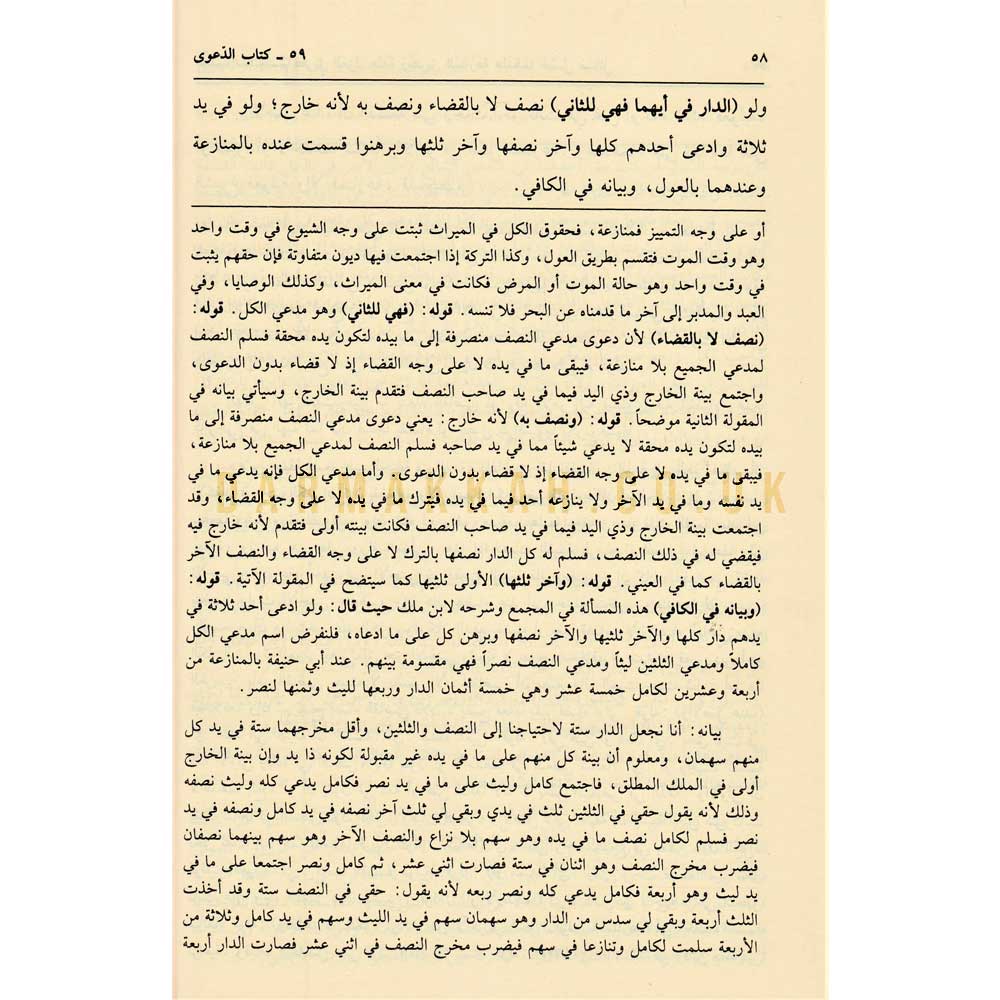 ٥٨
٥٩ ـ كتاب الدّعوى
ولو (الدار في أيهما فهي للثاني) نصف لا بالقضاء ونصف به لأنه خارج؛ ولو في يد
ثلاثة وادعى أحدهم كلها وآخر نصفها وآخر ثلثها وبرهنوا قسمت عنده بالمنازعة
وعندهما بالعول، وبيانه في الكافي.
أو على وجه التمييز فمنازعة، فحقوق الكل في الميراث ثبتت على وجه الشيوع في وقت واحد
وهو وقت الموت فتقسم بطريق العول، وكذا التركة إذا اجتمعت فيها ديون متفاوتة فإن حقهم يثبت
في وقت واحد وهو حالة الموت أو المرض فكانت في معنى الميراث، وكذلك الوصايا، وفي
العبد والمدبر إلى آخر ما قدمناه عن البحر فلا تنسه. قوله: (فهي للثاني) وهو مدعي الكل. قوله:
(نصف لا بالقضاء) لأن دعوى مدعي النصف منصرفة إلى ما بيده لتكون يده محقة فسلم النصف
لمدعي الجميع بلا منازعة، فيبقى ما في يده لا على وجه القضاء إذ لا قضاء بدون الدعوى،
واجتمع بينة الخارج وذي اليد فيما في يد صاحب النصف فتقدم بينة الخارج، وسيأتي بيانه في
المقولة الثانية موضحاً. قوله: (ونصف به) لأنه خارج: يعني دعوى مدعي النصف منصرفة إلى ما
بيده لتكون يده محقة لا يدعي شيئاً مما في يد صاحبه فسلم النصف لمدعي الجميع بلا منازعة،
فيبقى ما في يده لا على وجه القضاء إذ لا قضاء بدون الدعوى. وأما مدعي الكل فإنه يدعي ما في
يد نفسه وما في يد الآخر ولا ينازعه أحد فيما في يده فيترك ما في يده لا على وجه القضاء، وقد
DARMAKKAH.CO.UK
اجتمعت بينة الخارج وذي اليد فيما في يد صاحب النصف فكانت بينته أولى فتقدم لأنه خارج فيه
فيقضي له في ذلك النصف، فسلم له كل الدار نصفها بالترك لا على وجه القضاء والنصف الآخر
بالقضاء كما في العيني. قوله: (وآخر ثلثها) الأولى ثلثيها كما سيتضح في المقولة الآتية. قوله:
(وبيانه في الكافي) هذه المسألة في المجمع وشرحه لابن ملك حيث قال: ولو ادعى أحد ثلاثة في
يدهم دار كلها والآخر ثلثيها والآخر نصفها وبرهن كل على ما ادعاه، فلنفرض اسم مدعي الكل
كاملاً ومدعي الثلثين ليثاً ومدعي النصف نصراً فهي مقسومة بينهم. عند أبي حنيفة بالمنازعة من
أربعة وعشرين لكامل خمسة عشر وهي خمسة أثمان الدار وربعها لليث وثمنها لنصر.
بيانه: أنا نجعل الدار ستة لاحتياجنا إلى النصف والثلثين، وأقل مخرجهما ستة في يد كل
منهم سهمان، ومعلوم أن بينة كل منهم على ما في يده غير مقبولة لكونه ذا يد وإن بينة الخارج
أولى في الملك المطلق، فاجتمع كامل وليث على ما في يد نصر فكامل يدعي كله وليث نصفه
وذلك لأنه يقول حقي في الثلثين ثلث في يدي وبقي لي ثلث آخر نصفه في يد كامل ونصفه في يد
نصر فسلم لكامل نصف ما في يده وهو سهم بلا نزاع والنصف الآخر وهو سهم بينهما نصفان
فيضرب مخرج النصف وهو اثنان في ستة فصارت اثني عشر، ثم كامل ونصر اجتمعا على ما في
يد ليث وهو أربعة فكامل يدعي كله ونصر ربعه لأنه يقول: حقي في النصف ستة وقد أخذت
الثلث أربعة وبقي لي سدس من الدار وهو سهمان سهم في يد الليث وسهم في يد كامل وثلاثة من
الأربعة سلمت لكامل وتنازعا في سهم فيضرب مخرج النصف في اثني عشر فصارت الدار أربعة